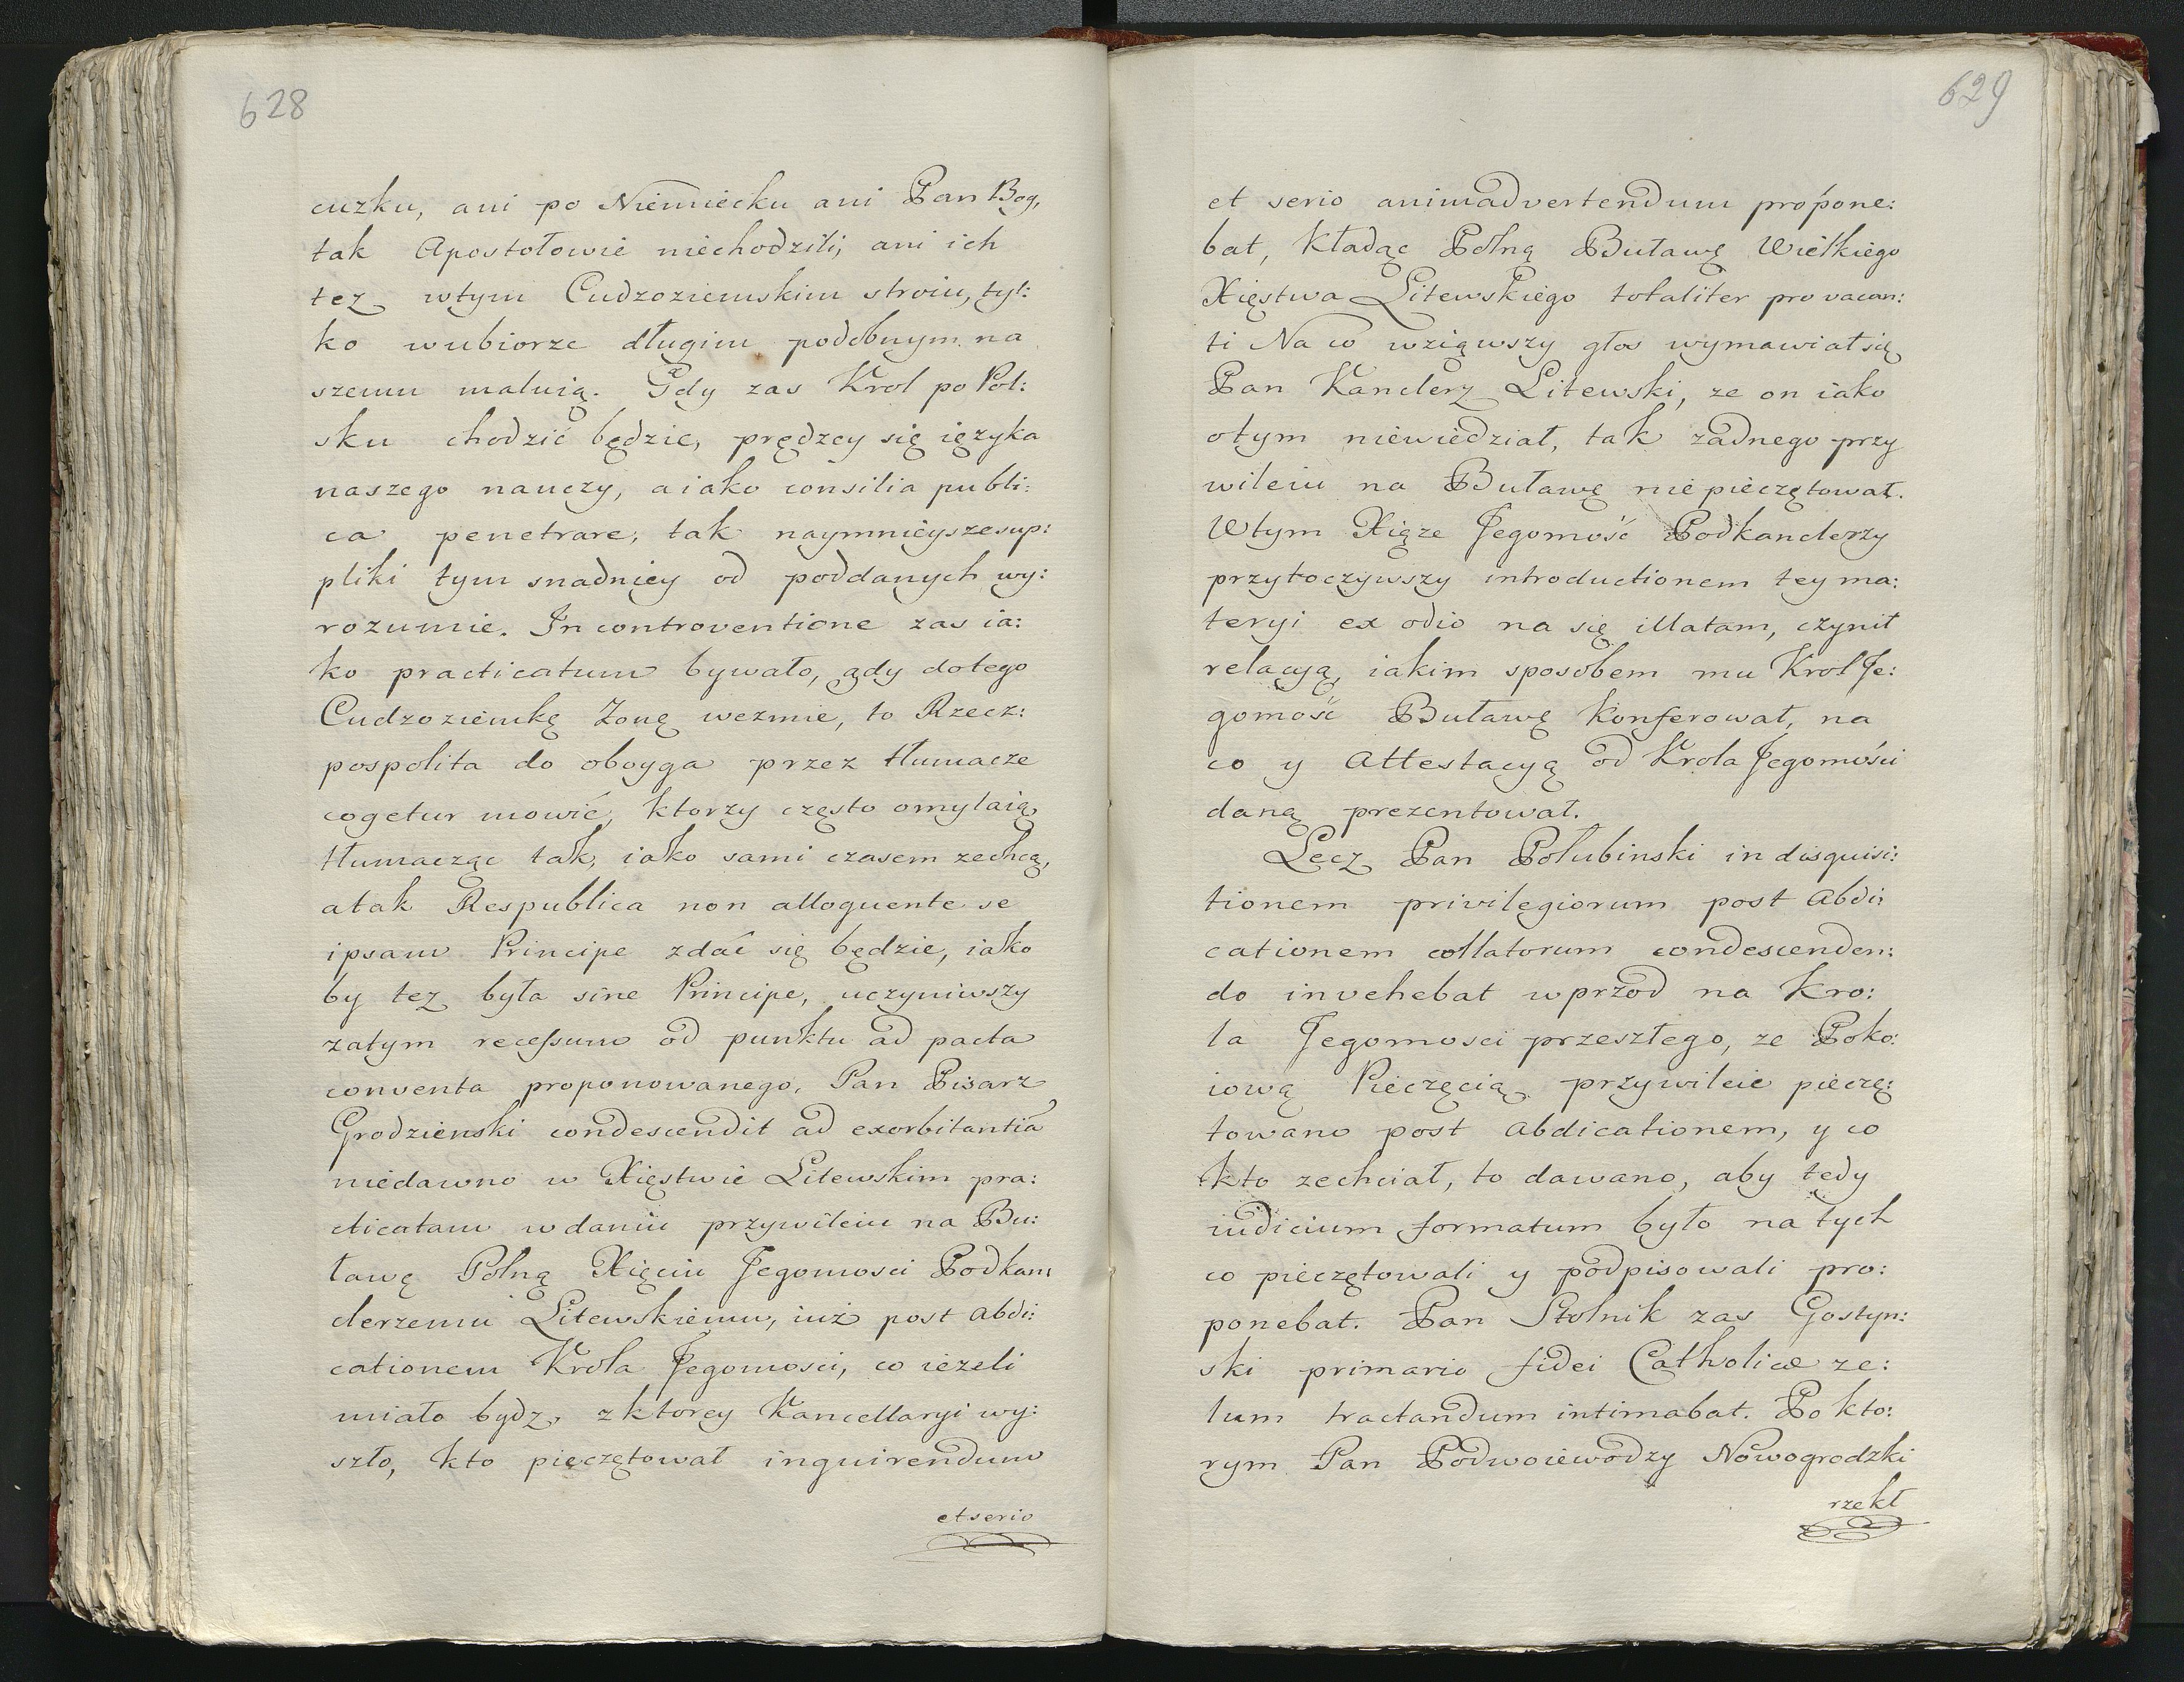 628
cuzku, ani po Niemiecku ani Pan Bog,
tak Apostołowie niechodzili, ani ich
tez wtym Cudzoziemskim stroiu, tyl:
ko wubiorze długim podobnym na
szemu maluią. Gdy zas Krol po Pol:
sku chodzić będzie, prędzey się ięzyka
naszego nauczy, a iako consilia publi:
ca penetrare, tak naymnieyszesup:
pliki tym snadniey od poddanych wy:
rozumie. In controventione zas ia:
ko practicatum bywało, gdy dotego
Cudzoziemkę Zonę wezmie, to Rzecz:
pospolita do oboyga przez tłumacze
cogetur mowić, ktorzy często omylaią,
tłumacząc tak, iako sami czasem zechcą,
atak Respublica non alloquente se
ipsam Principe zdać się będzie, iako
by tez była sine Principe, uczyniwszy
zatym recessum od punktu ad pacta
conventa proponowanego, Pan Pisarz
Grodzienski condescendit ad exorbitantia
niedawno w Xięstwie Litewskim pra:
cticatam w daniu przywileiu na Bu:
ławę Polną Xięciu Jegomosci Podkan:
clerzemu Litewskiemu, iuż post abdi:
cationem Krola Jegomosci, co iezeli
miało bydz, z ktorey Kancellaryi wy:
szło, kto pieczętował inquirendum
et serio
629
et serio animadvertendum propone:
bat, kładąc Polną Buławę Wielkiego
Xięstwa Litewskiego totaliter pro vacan:
ti Na co wziąwszy głos wymawiał się
Pan Kanclerz Litewski, ze on iako
otym niewiedział, tak zadnego przy
wileiu na Buławę niepieczętował.
Wtym Xiąze Jegomość Podkanclerzy
przytoczywszy introductionem tey ma:
teryi ex odio na się illatam, czynił
relacyą, iakim sposobem mu Krol Je:
gomość Buławę konferował, na
co y Attestacyą od Krola Jegomości
daną prezentował.
Lecz Pan Połubinski in disquisi:
tionem privilegiorum post abdi:
cationem collatorum condescenden:
do invehebat wprzod na Kro:
la Jegomosci przeszłego, ze Poko:
iową Pieczęcią przywileie pieczę:
towano post abdicationem, y co
kto zechciał, to dawano, aby tedy
iudicium formatum było na tych
co pieczętowali y podpisowali pro:
ponebat. Pan Stolnik zas Gostyn:
ski primario fidei Catholicæ ze:
lum tractandum intimabat. Po kto:
rym Pan Podwoiewodzy Nowogrodzki
rzekł